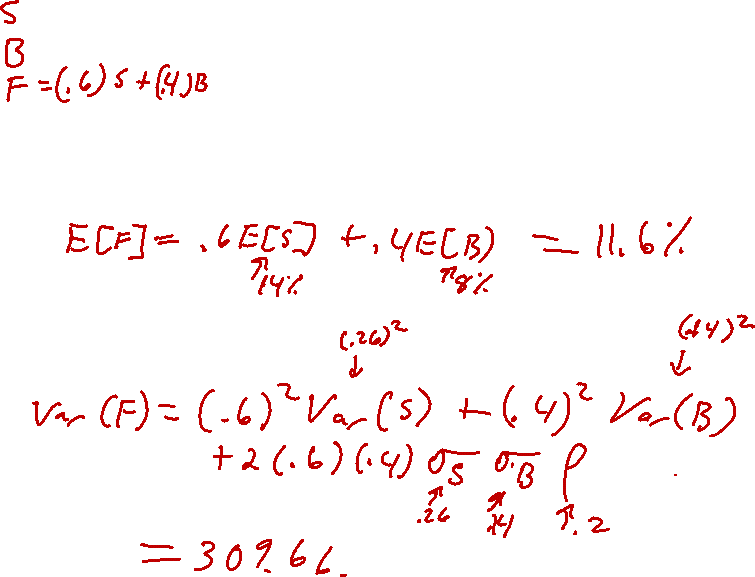 S
B
F = (.6) S + (.4) B
E[F] = .6 E[S] + .4 E[B] = 11.6%
↑14% ↑8%
(.26)² (.14)²
↓ ↓
Var (F) = (.6)² Var (S) + (.4)² Var (B)
+ 2 (.6) (.4) σS σB ρ
↑ ↑ ↑.2
.26 .14
= 309.66.